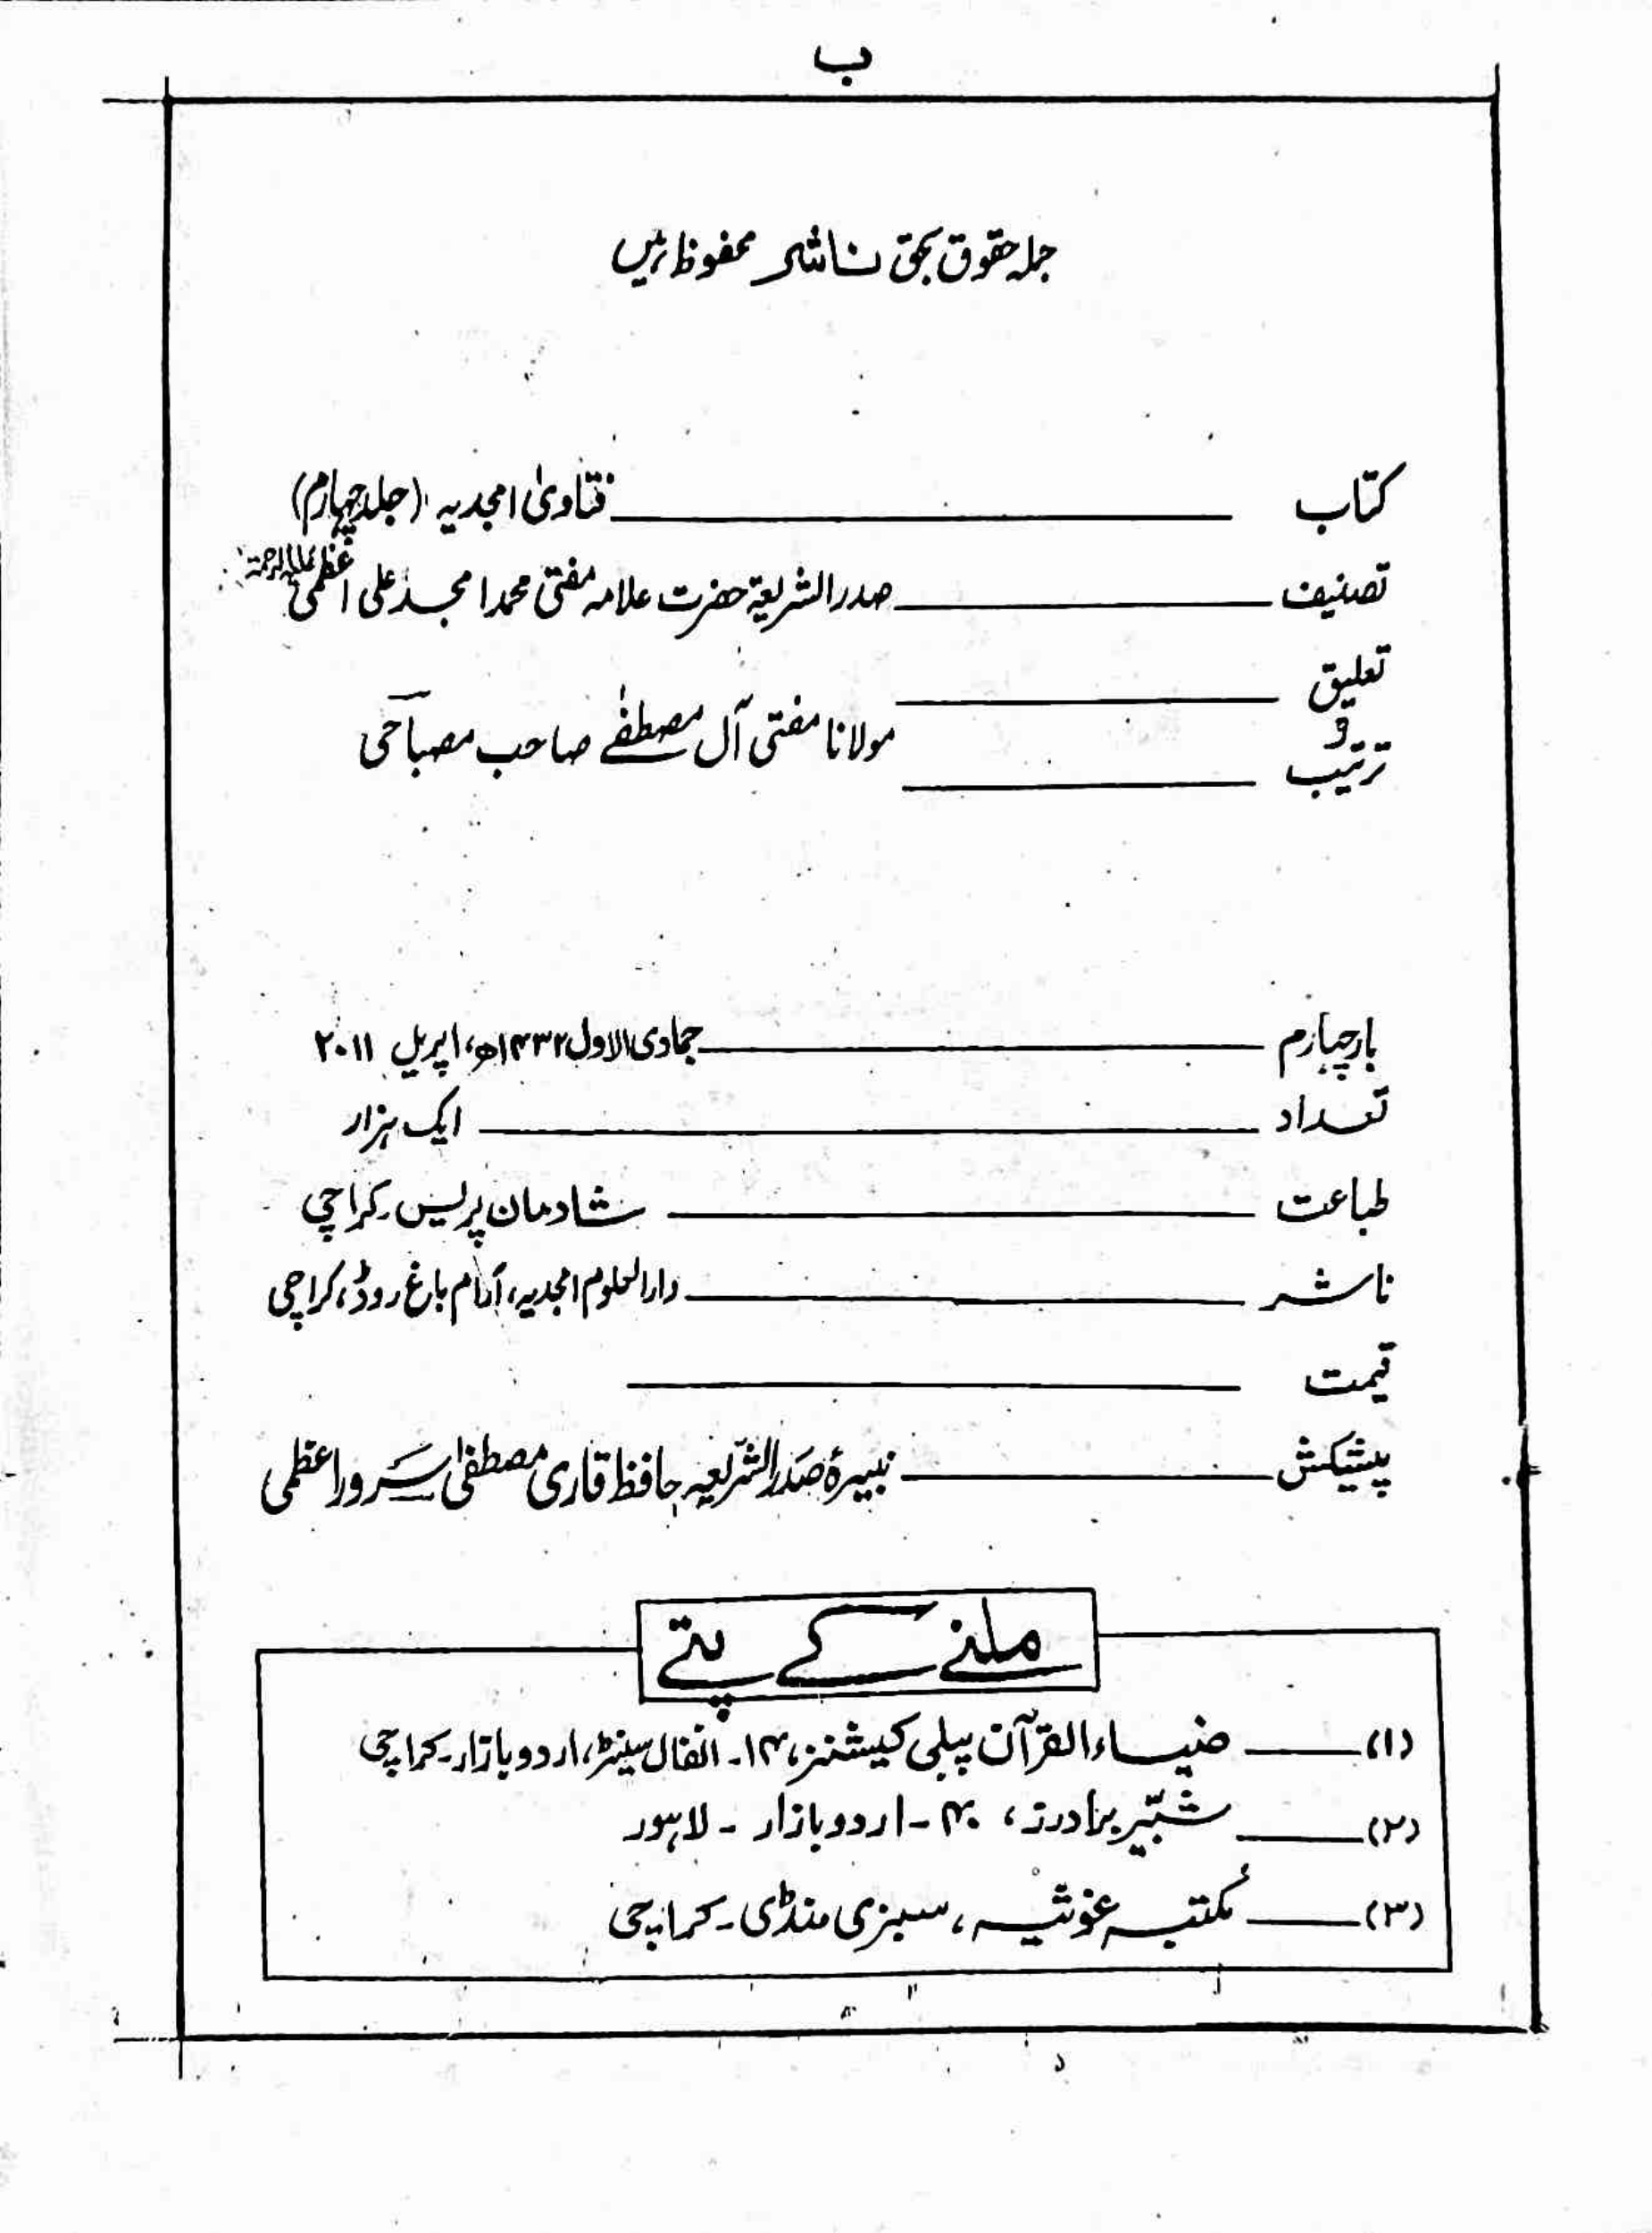 ب
جملہ حقوق بحق ناشر محفوظ ہیں
کتاب ـــــ فتاویٰ امجدیہ (جلد چہارم)
تصنیف ـــــ صدر الشریعۃ حضرت علامہ مفتی محمد امجد علی اعظمی علیہ الرحمۃ
تعلیق
و
ترتیب ـــــ مولانا مفتی آل مصطفےٰ صاحب مصباحی
بار چہارم ـــــ جمادی الاول ۱۴۳۲ھ، اپریل ۲۰۱۱
تعداد ـــــ ایک ہزار
طباعت ـــــ شادمان پریس۔ کراچی
ناشر ـــــ دارالعلوم امجدیہ، آرام باغ روڈ، کراچی
قیمت ـــــ
پیشکش ـــــ نبیرۂ صدر الشریعہ حافظ قاری مصطفیٰ سرور اعظمی
ملنے کے پتے
(۱) ـــــ ضیاء القرآن پبلی کیشنز، ۱۴۔ انفال سینٹر، اردو بازار۔ کراچی
(۲) ـــــ شبّیر برادرز، ۴۰ - اردو بازار - لاہور
(۳) ـــــ مکتبہ غوثیہ، سبزی منڈی۔ کراچی